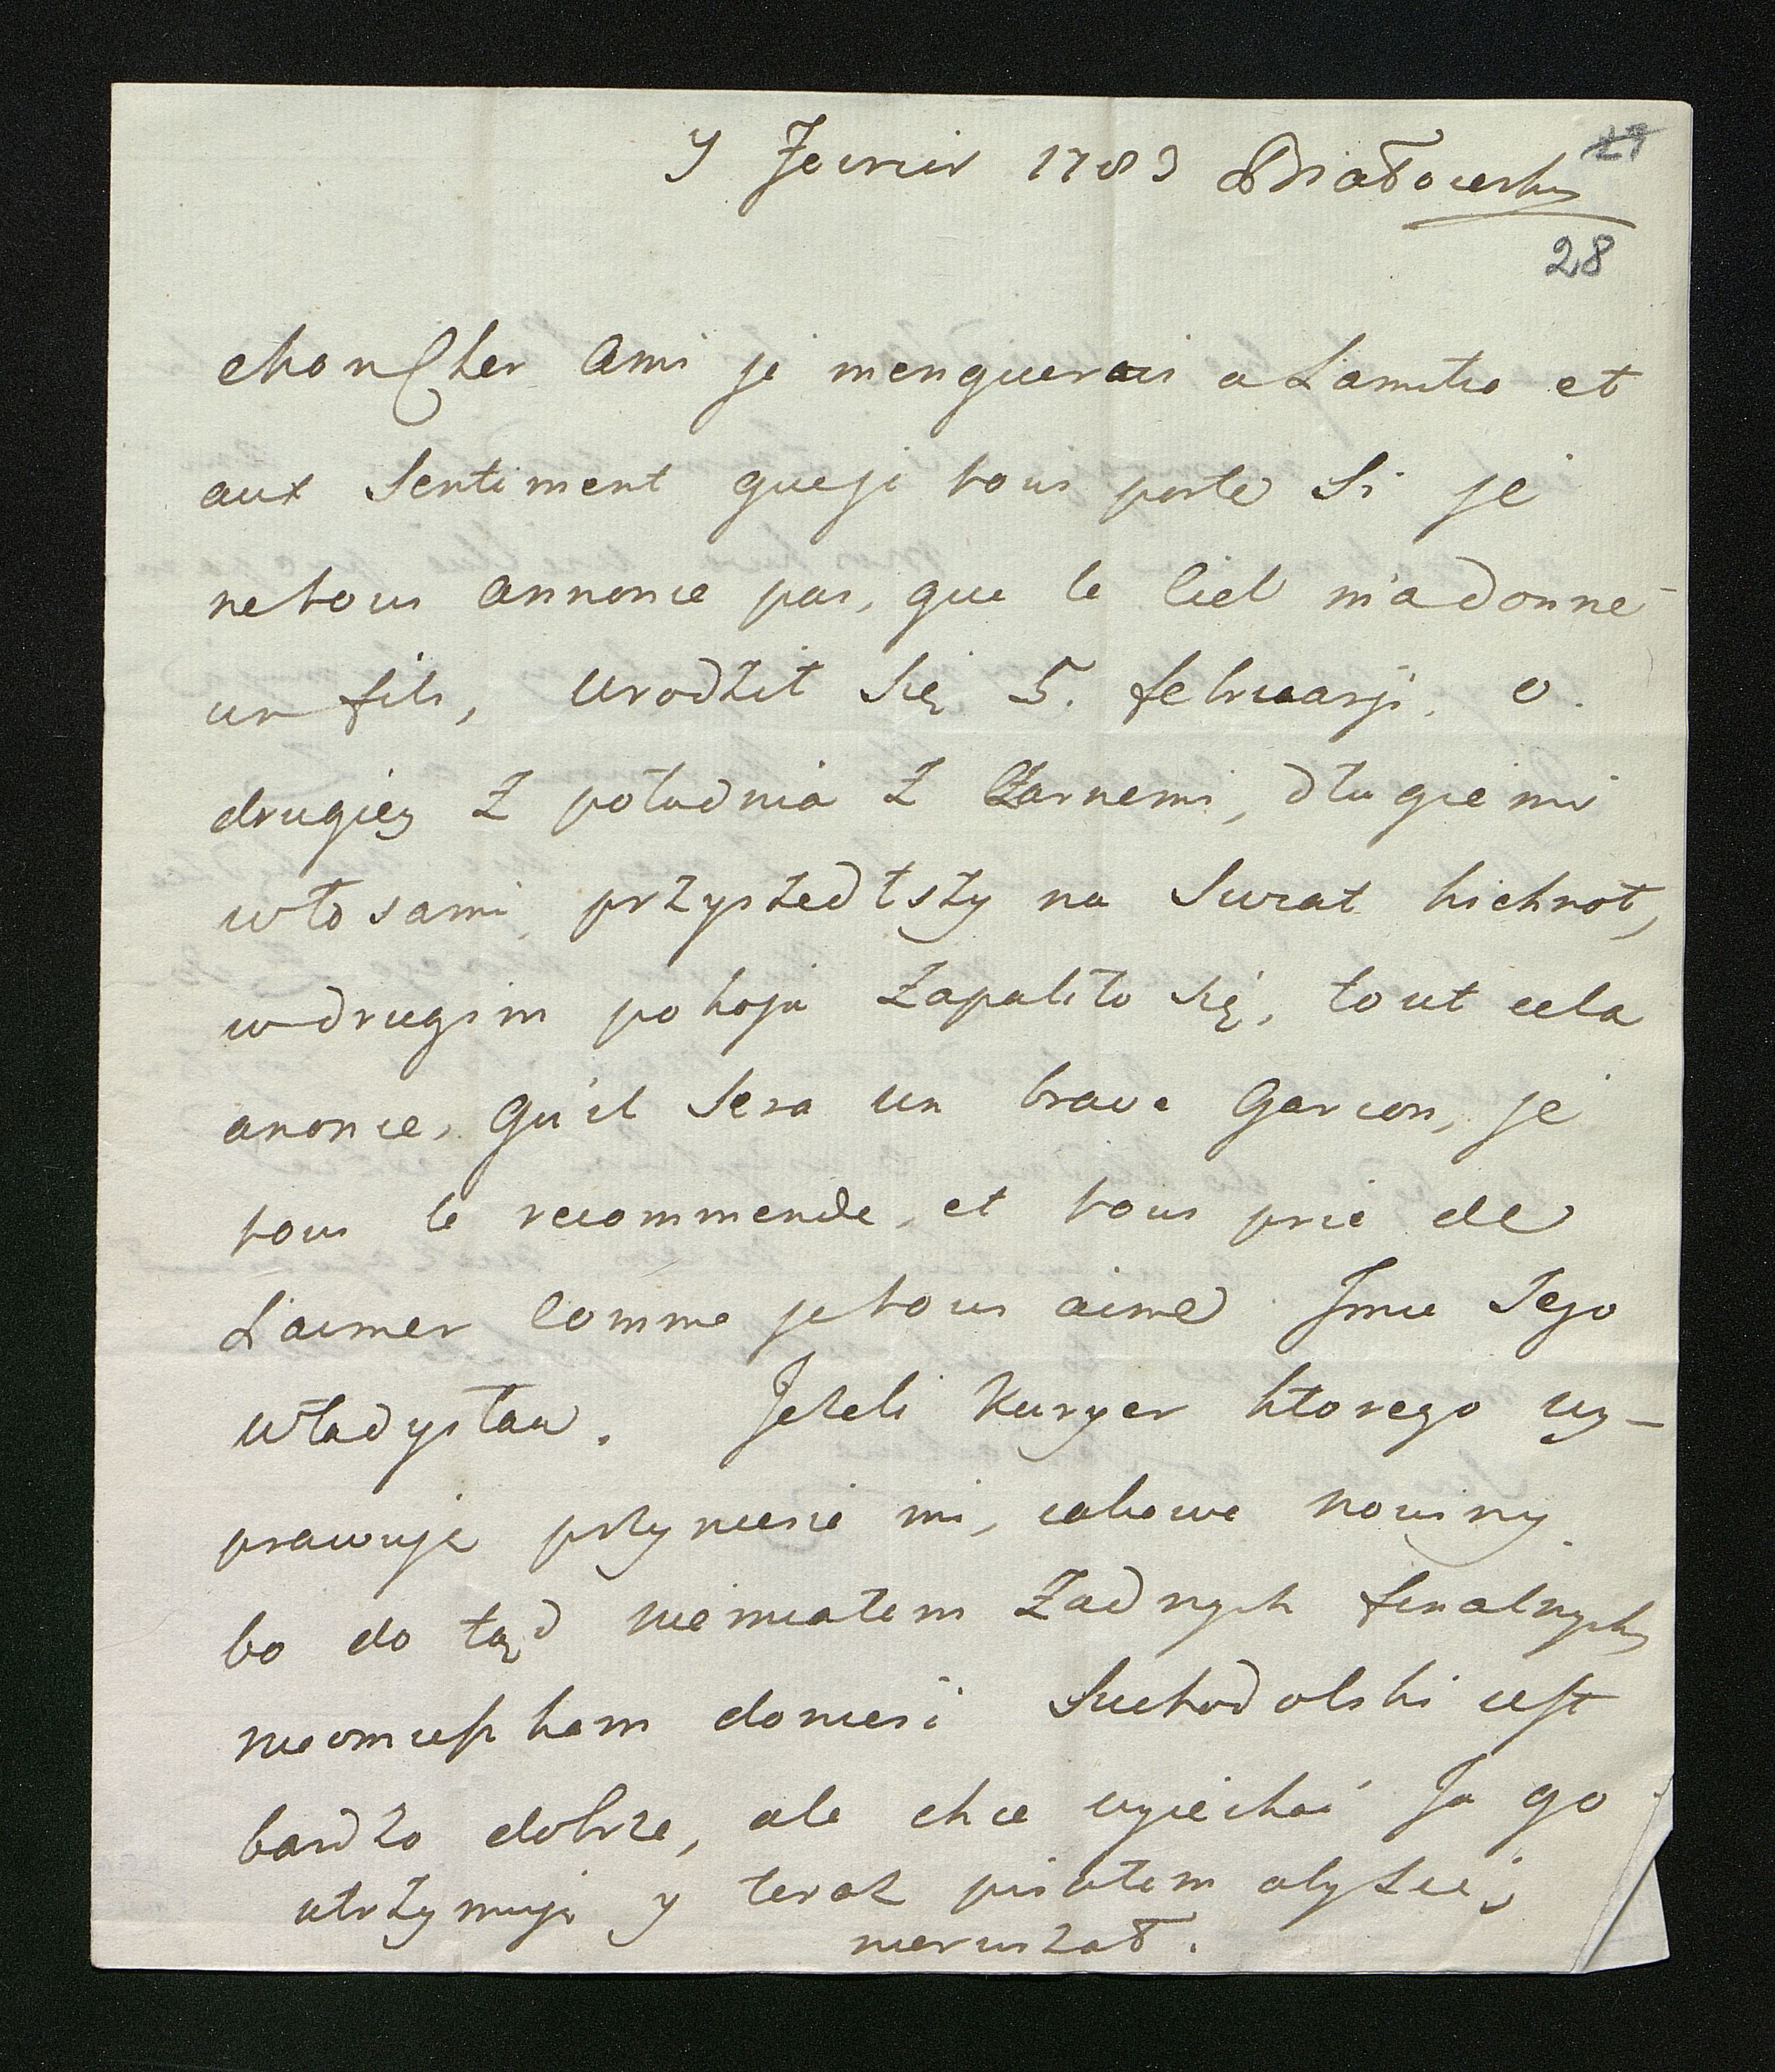 9 Fevrier 1783 Białocerkw
27
28
Mon Cher Ami je menquerais a Lamitie et
aux Sentiment queje vous porte Si je
nevous annonce pas, que le Ciel m'adonne
un fils, Urodził Się 5. februarji. o.
drugiey Z południa Z Czarnemi, długiemi
włosami, przyszedłszy na Swiat kichnoł,
wdrugim pokoju Zapaliło Się, tout cela
anonce, Qu'il Sera un brave Garcon, je
vous le recommende, et vous prie de
L'aimer Comme jevous aime Imie Jego
Władysław. Jezeli Kuryer ktorego wy-
prawuje przyniesie mi, jakowe nowiny
bo do tąd niemiałem Zadnych finalnych
nieomieszkam doniesć Suchodolski iest
bardzo dobrze, ale chce wyiechać Ja go
utrzymuje y teraz pisałem abysie
nieruszał.